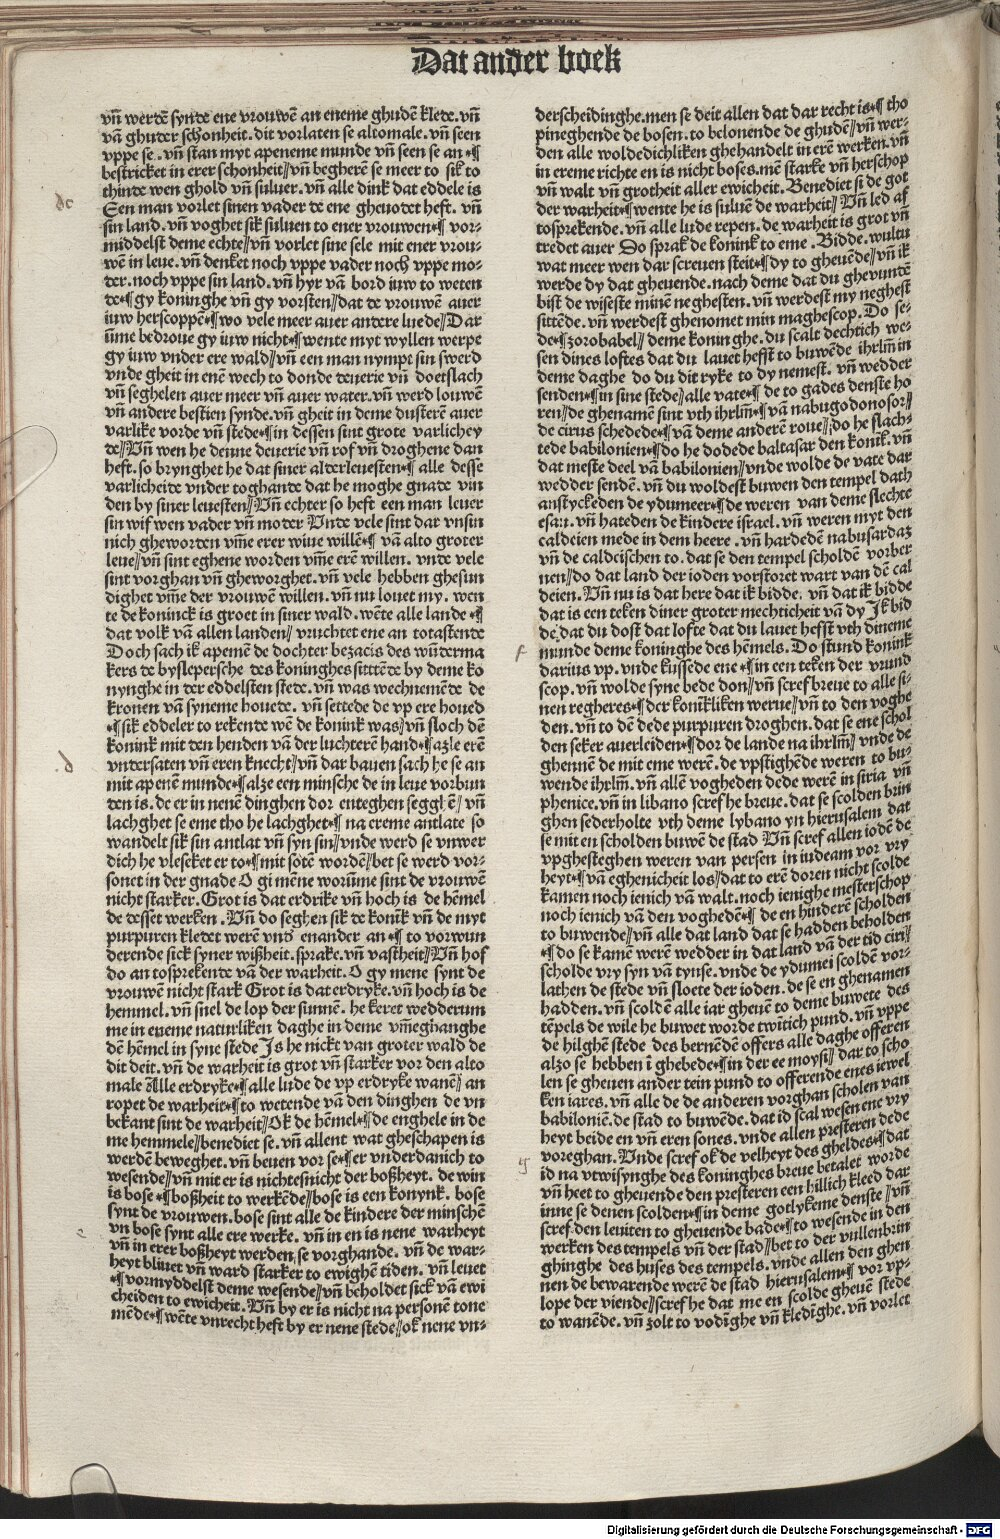 Dat ander boek
vñ werdē synde ene vrouwē an eneme ghudē klede. vñ
vā ghuder schonheit. dit vorlaten se altomale. vñ seen
vppe se. vñ stan myt apeneme munde vñ seen se an ⁌
bestricket in erer schonheit // vñ begherē se meer to sik to
thinde wen ghold vñ suluer. vñ alle dink dat eddele is
Een man vorlet sinen vader de ene gheuodet heft. vñ
sin land. vñ voghet sik suluen to ener vrouwen ⁌ vor-
middelst deme echte // vñ vorlet sine sele mit ener vrou-
wē in leue. vñ denket noch vppe vader noch vppe mo-
der. noch vppe sin land. vñ hyr vā bord iuw to weten
de ⁌ gy koninghe vñ gy vorsten // dat de vrouwē auer
iuw herscoppē ⁌ wo vele meer auer andere luede // Dar
ūme bedroue gy iuw nicht ⁌ wente myt wyllen werpe
gy iuw vnder ere wald // vñ een man nympt sin swerd
vnde gheit in enē wech to donde deuerie vñ doetslach
vñ seghelen auer meer vñ auer water. vñ werd louwē
vñ andere bestien synde. vñ gheit in deme dusterē auer
varlike vorde vñ stede ⁌ in dessen sint grote varlichey
de // Vñ wen he denne deuerie vñ rof vñ droghene dan
heft. so brynghet he dat siner alderleuesten ⁌ alle desse
varlicheide vnder toghande dat he moghe gnade vin
den by siner leuesten // Vñ echter so heft een man leuer
sin wif wen vader vñ moder Vnde vele sint dar vnsin
nich gheworden vm̄e erer wiue willē ⁌ vā alto groter
leue // vñ sint eghene worden vm̄e erē willen. vnde vele
sint vorghan vñ gheworghet. vñ vele hebben ghesun
dighet vm̄e der vrouwē willen. vñ nu louet my. wen
te de koninck is groet in siner wald. wēte alle lande ⁌
dat volk vā allen landen // vruchtet ene an totastende
Doch sach ik apemē de dochter bezacis des wūderma
kers de byslepersche des koninghes sittēde by deme ko
nynghe in der eddelsten stede. vñ was wechnemēde de
kronen vā syneme houede. vñ settede de vp ere houed
⁌ sik eddeler to rekende wē de konink was // vñ sloch dē
konink mit den henden vā der luchterē hand ⁌ azle erē
vndersaten vñ eren knecht // vñ dar bauen sach he se an
mit apenē munde ⁌ alze een minsche de in leue vorbun
den is. de er in nenē dinghen dor enteghen segghē // vñ
lachghet se eme tho he lachghet ⁌ na ereme antlate so
wandelt sik sin antlat vñ syn sin // vnde werd se vnwer
dich he vlesket er to ⁌ mit sōtē wordē // bet se werd vor-
sonet in der gnade O gi mēne worūme sint de vrouwē
nicht starker. Grot is dat erdrike vñ hoch is de hēmel
de desset werken. Vñ do seghen sik de konik vñ de myt
purpuren kledet werē vnd enander an ⁌ to vorwun
derende sick syner wißheit. sprake. vñ vastheit // Vñ hof
do an tosprekende vā der warheit. O gy mene synt de
vrouwē nicht stark Grot is dat erdryke. vñ hoch is de
hemmel. vñ snel de lop der sunnē. he keret wedderum
me in eneme naturliken daghe in deme vm̄eghanghe
dē hēmel in syne stede Is he nickt van groter wald de
dit deit. vñ de warheit is grot vñ starker vor den alto
male Alle erdryke ⁌ alle lude de vp erdryke wanē // an
ropet de warheit ⁌ to wetende vā den dinghen de vn
bekant sint de warheit // Ok de hēmel ⁌ de enghele in de
me hemmele // benediet se. vñ allent wat gheschapen is
werdē beweghet. vñ beuen vor se ⁌ er vnderdanich to
wesende // vñ mit er is nichtesnicht der boßheyt. de win
is bose ⁌ boßheit to werkēde // bose is een konynk. bose
synt de vrouwen. bose sint alle de kindere der minschē
vn bose synt alle ere werke. vñ in en is nene warheyt
vñ in erer boßheyt werden se vorghande. vñ de war-
heyt bliuet vñ ward starker to ewighē tiden. vñ leuet
⁌ vormyddelst deme wesende // vñ beholdet sick vā ewi
cheiden to ewicheit. Vñ by er is nicht na personē tone
mēde ⁌ wēte vnrecht heft by er nene stede // ok nene vn-
derscheidinghe. men se deit allen dat dar recht is ⁌ tho
pineghende de bosen. to belonende de ghudē // vñ wer-
den alle woldedichliken ghehandelt in erē werken. vñ
in ereme richte en is nicht boses. mē starke vñ herschop
vñ walt vñ grotheit aller ewicheit. Benediet si de got
der warheit ⁌ wente he is suluē de warheit // Vñ led af
tosprekende. vñ alle lude repen. de warheit is grot vñ
tredet auer Do sprak de konink to eme. Bidde. wultu
wat meer wen dar screuen steit ⁌ dy to gheuēde // vñ ik
werde dy dat gheuende. nach deme dat du gheuunde
bist de wiseste minē neghesten. vñ werdest my neghest
sittēde. vñ werdest ghenomet min maghescop. Do se-
de ⁌ zorobabel // deme koninghe. du scalt dechtich we-
sen dines loftes dat du lauet hefft to buwēde ihrlm̄ in
deme daghe do du dit ryke to dy nemest. vñ wedder
senden ⁌ in sine stede // alle vate ⁌ de to gades denste ho
ren // de ghenamē sint vth ihrlm̄ ⁌ vā nabugodonosor //
de cirus schedede ⁌ vā deme anderē roue // do he slach-
tede babilonien ⁌ do he dodede baltasar den konik. vñ
dat meste deel vā babilonien // vnde wolde de vate dar
wedder sendē. vñ du woldest buwen den tempel dath
anstyckeden de ydumeer ⁌ de weren van deme slechte
esau. vñ hateden de kindere israel. vñ weren myt den
caldeien mede in dem heere. vñ hardedē nabusardaz
vñ de caldeischen to. dat se den tempel scholdē vorber
nen // do dat land der ioden vorstoret wart van dē cal
deien. Vñ nu is dat here dat ik bidde. vñ dat ik bidde
dat is een teken diner groter mechticheit vā dy Ik bid
de. dat du dost dat lofte dat du lauet hefft vth dineme
munde deme koninghe des hēmels. Do stund konink
darius vp. vnde kussede ene ⁌ in een teken der vrund
scop. vñ wolde syne bede don // vñ scref breue to alle si-
nen regheres ⁌ der konikliken werue // vñ to den voghe
den. vñ to dē dede purpuren droghen. dat se ene schol
den seker auerleiden ⁌ dor de lande na ihrlm̄ // vnde de
ghennē de mit eme werē. de vpstighēde weren to bu-
wende ihrlm̄. vñ allē vogheden dede werē in siria vñ
phenice. vñ in libano scref he breue. dat se scolden brin
ghen sederholte vth deme lybano yn hierusalem dat
se mit en scholden buwē de stad Vñ scref allen iodē de
vpghesteghen weren van persen in iudeam vor vry
heyt ⁌ vā eghenicheit los // dat to erē doren nicht scolde
kamen noch ienich vā walt. noch ienighe mesterschop
noch ienich vā den voghedē ⁌ de en hinderē scholden
to buwende // vñ alle dat land dat se hadden beholden
⁌ do se kamē werē wedder in dat land vā der tid ciri //
scholde vry syn vā tynse. vnde de ydumei scoldē vor-
lathen de stede vñ sloete der ioden. de se en ghenamen
hadden. vñ scoldē alle iar gheuē to deme buwete des
tēpels de wile he buwet worde twītich pund. vñ vppe
de hilghē stede des bernēdē offers alle daghe offeren
alzo se hebben ī ghebede ⁌ in der ee moysi // dar to scho
len se gheuen ander tein pund to offerende enes iewel
ken iares. vñ alle de de anderen vorghan scholen van
babiloniē. de stad to buwēde. dat id scal wesen ene vry
heyt beide en vñ eren sones. vnde allen presteren dede
voreghan. Vnde scref ok de velheyt des gheldes ⁌ dat
id na vtwisynghe des koninghes breue betalet worde
vñ heet to gheuende den presteren een hillich kleed dar
inne se denen scolden ⁌ in deme gotlykeme denste // vñ
scref. den leuiten to gheuende bade ⁌ to wesende in den
werken des tempels vñ der stad // bet to der vullenbrin
ghinghe des huses des tempels. vnde allen den ghen
nen de bewarende werē de stad hierusalem ⁌ vor vp-
lope der viende // scref he dat me en scolde gheuē stede
to wanēde. vñ zolt to vodīghe vñ kledīghe. vñ vorlet
Digitalisierung gefördert durch die Deutsche Forschungsgemeinschaft - DFG